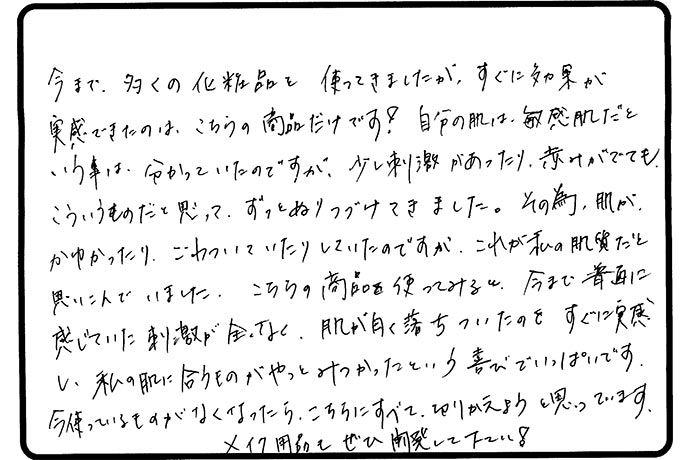 今まで、多くの化粧品を 使ってきましたが、すぐに効果が
実感できたのは、こちらの商品だけです! 自分の肌は、敏感肌だと
いう事は、分かっていたのですが、少し刺激があったり、赤みがでても、
こういうものだと思って、ずっとぬりつづけてきました。その為、肌が、
かゆかったり、ごわついていたりしていたのですが、これが私の肌質だと
思いこんでいました。こちらの商品を使ってみると、今まで普通に
感じていた刺激が全くなく、肌が白く落ちついたのをすぐに実感
し、私の肌に合うものがやっとみつかったという喜びでいっぱいです。
今使っているものがなくなったら、こちらにすべて、切りかえようと思っています。
メイク用品もぜひ開発して下さい!